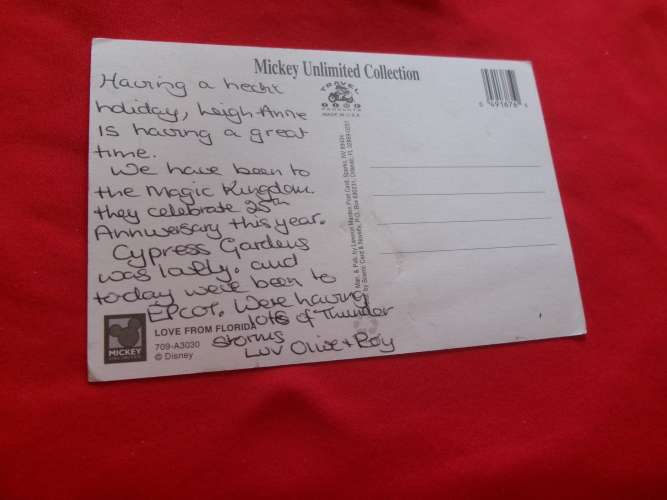 Mickey Unlimited Collection
TRAVEL
PRODUCTS
MADE IN U.S.A.
0 49167
Having a hecht
holiday, Leigh-Anne
is having a great
time.
We have been to
the Magic Kingdom.
they celebrate 25th
Anniversary this year.
Cypress Gardens
was lovely. and
today weve been to
EPCOT. Were having
lots of Thunder
storms
Luv Olive + Roy
MICKEY
LOVE FROM FLORIDA
709-A3030
© Disney